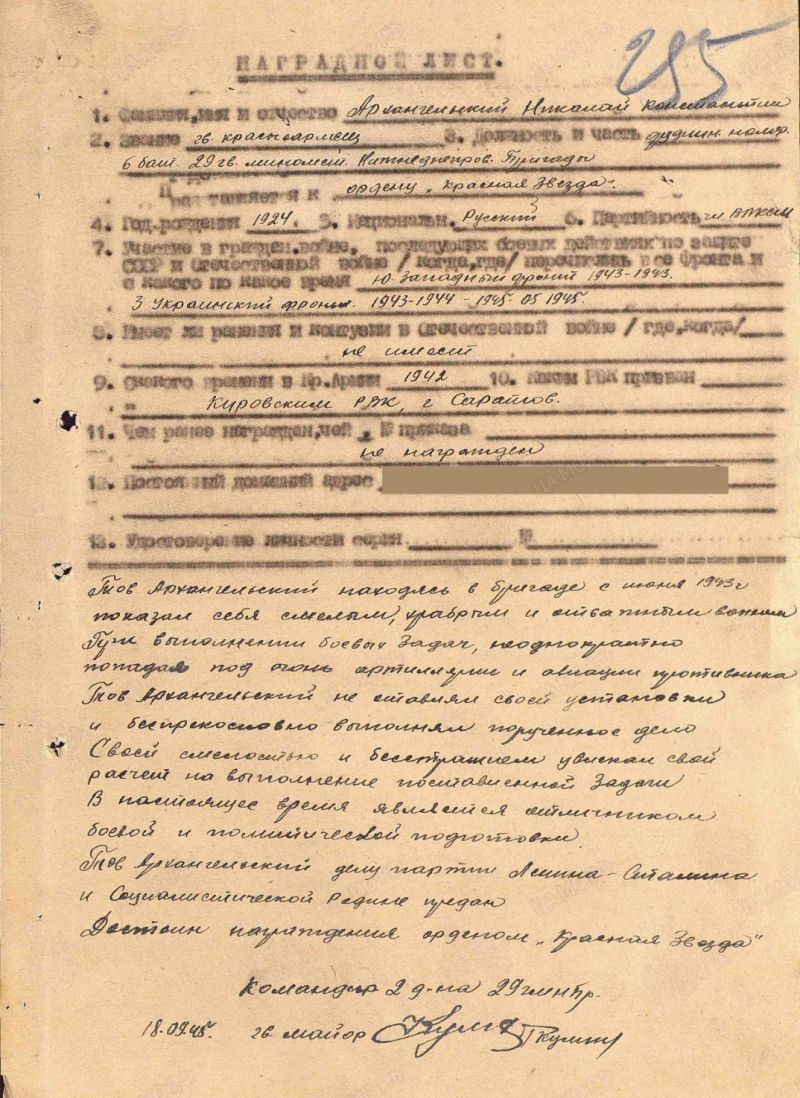 295
НАГРАДНОЙ ЛИСТ.
1. Фамилия, имя и отчество Архангельский Николай Константин
2. Звание гв. красноармеец 3. Должность и часть орудийн. номер.
6 бат. 29 гв. миномет. Нижнеднепров. Бригады
представляется к ордену „Красная Звезда".
4. Год рождения 1924. 5. Национальн. Русский 6. Партийность чл ВЛКСМ
7. Участие в граждан. войне, последующих боевых действиях по защите
СССР и Отечественной войне /когда, где/ перечислить все фронта и
с какого по какое время Ю-Западный фронт 1943-1943.
3 Украинский фронт. 1943-1944 - 1945. 05 1945.
8. Имеет ли ранения и контузии в Отечественной войне /где, когда/
не имеет
9. С какого времени в Кр. Армии 1942 10. Каким РВК призван
Кировским РВК, г Саратов.
11. Чем ранее награжден, чей, № приказа
не награжден
12. Постоянный домашний адрес
13. Удостоверение личности серии №
Тов Архангельский находясь в бригаде с июня 1943 г
показал себя смелым, храбрым и отважным воином
При выполнении боевых задач, неоднократно
попадая под огонь артиллерии и авиации противника
Тов Архангельский не оставлял своей установки
и беспрекословно выполнял порученное дело
Своей смелостью и бесстрашием увлекал свой
расчет на выполнение поставленной задачи
В настоящее время является отличником
боевой и политической подготовки.
Тов Архангельский делу партии Ленина-Сталина
и Социалистической Родине предан
Достоин награждения орденом „Красная Звезда"
Командир 2 д-на 29 гмнбр.
18.09.45. гв. майор